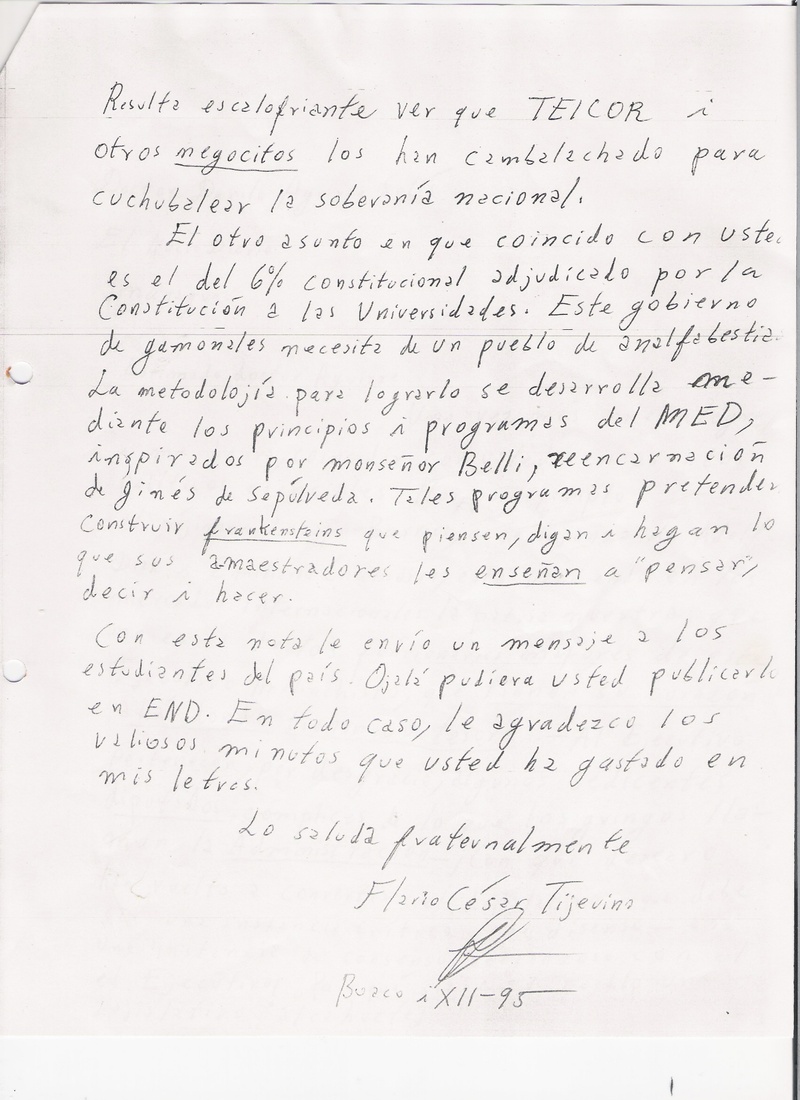 Resulta escalofriante ver que TELCOR i
otros negocitos los han cambalachado para
cuchubalear la soberanía nacional.
El otro asunto en que coincido con usted
es el del 6% constitucional adjudicado por la
Constitución a las Universidades. Este gobierno
de gamonales necesita de un pueblo de analfabestia
La metodolojía para lograrlo se desarrolla me-
diante los principios i programas del MED,
inspirados por monseñor Belli, reencarnación
de Ginés de Sepúlveda. Tales programas pretenden
construir frankensteins que piensen, digan i hagan lo
que sus amaestradores les enseñan a "pensar",
decir i hacer.
Con esta nota le envío un mensaje a los
estudiantes del país. Ojalá pudiera usted publicarlo
en END. En todo caso, le agradezco los
valiosos minutos que usted ha gastado en
mis letras.
Lo saluda fraternalmente
Flavio César Tijerino
Boaco i XII-95